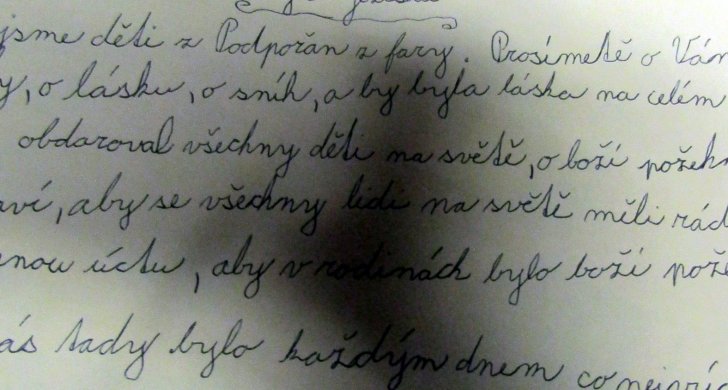 jsme děti z Podpořan z fary. Prosímetě o Ván
y, o lásku, o sníh, a by byla láska na celém
obdaroval všechny děti na světě, o boží požehn
aví, aby se všechny lidi na světě měli rád
enou úctu, aby v rodinách bylo boží pože
ás tady bylo každým dnem co nejvíc